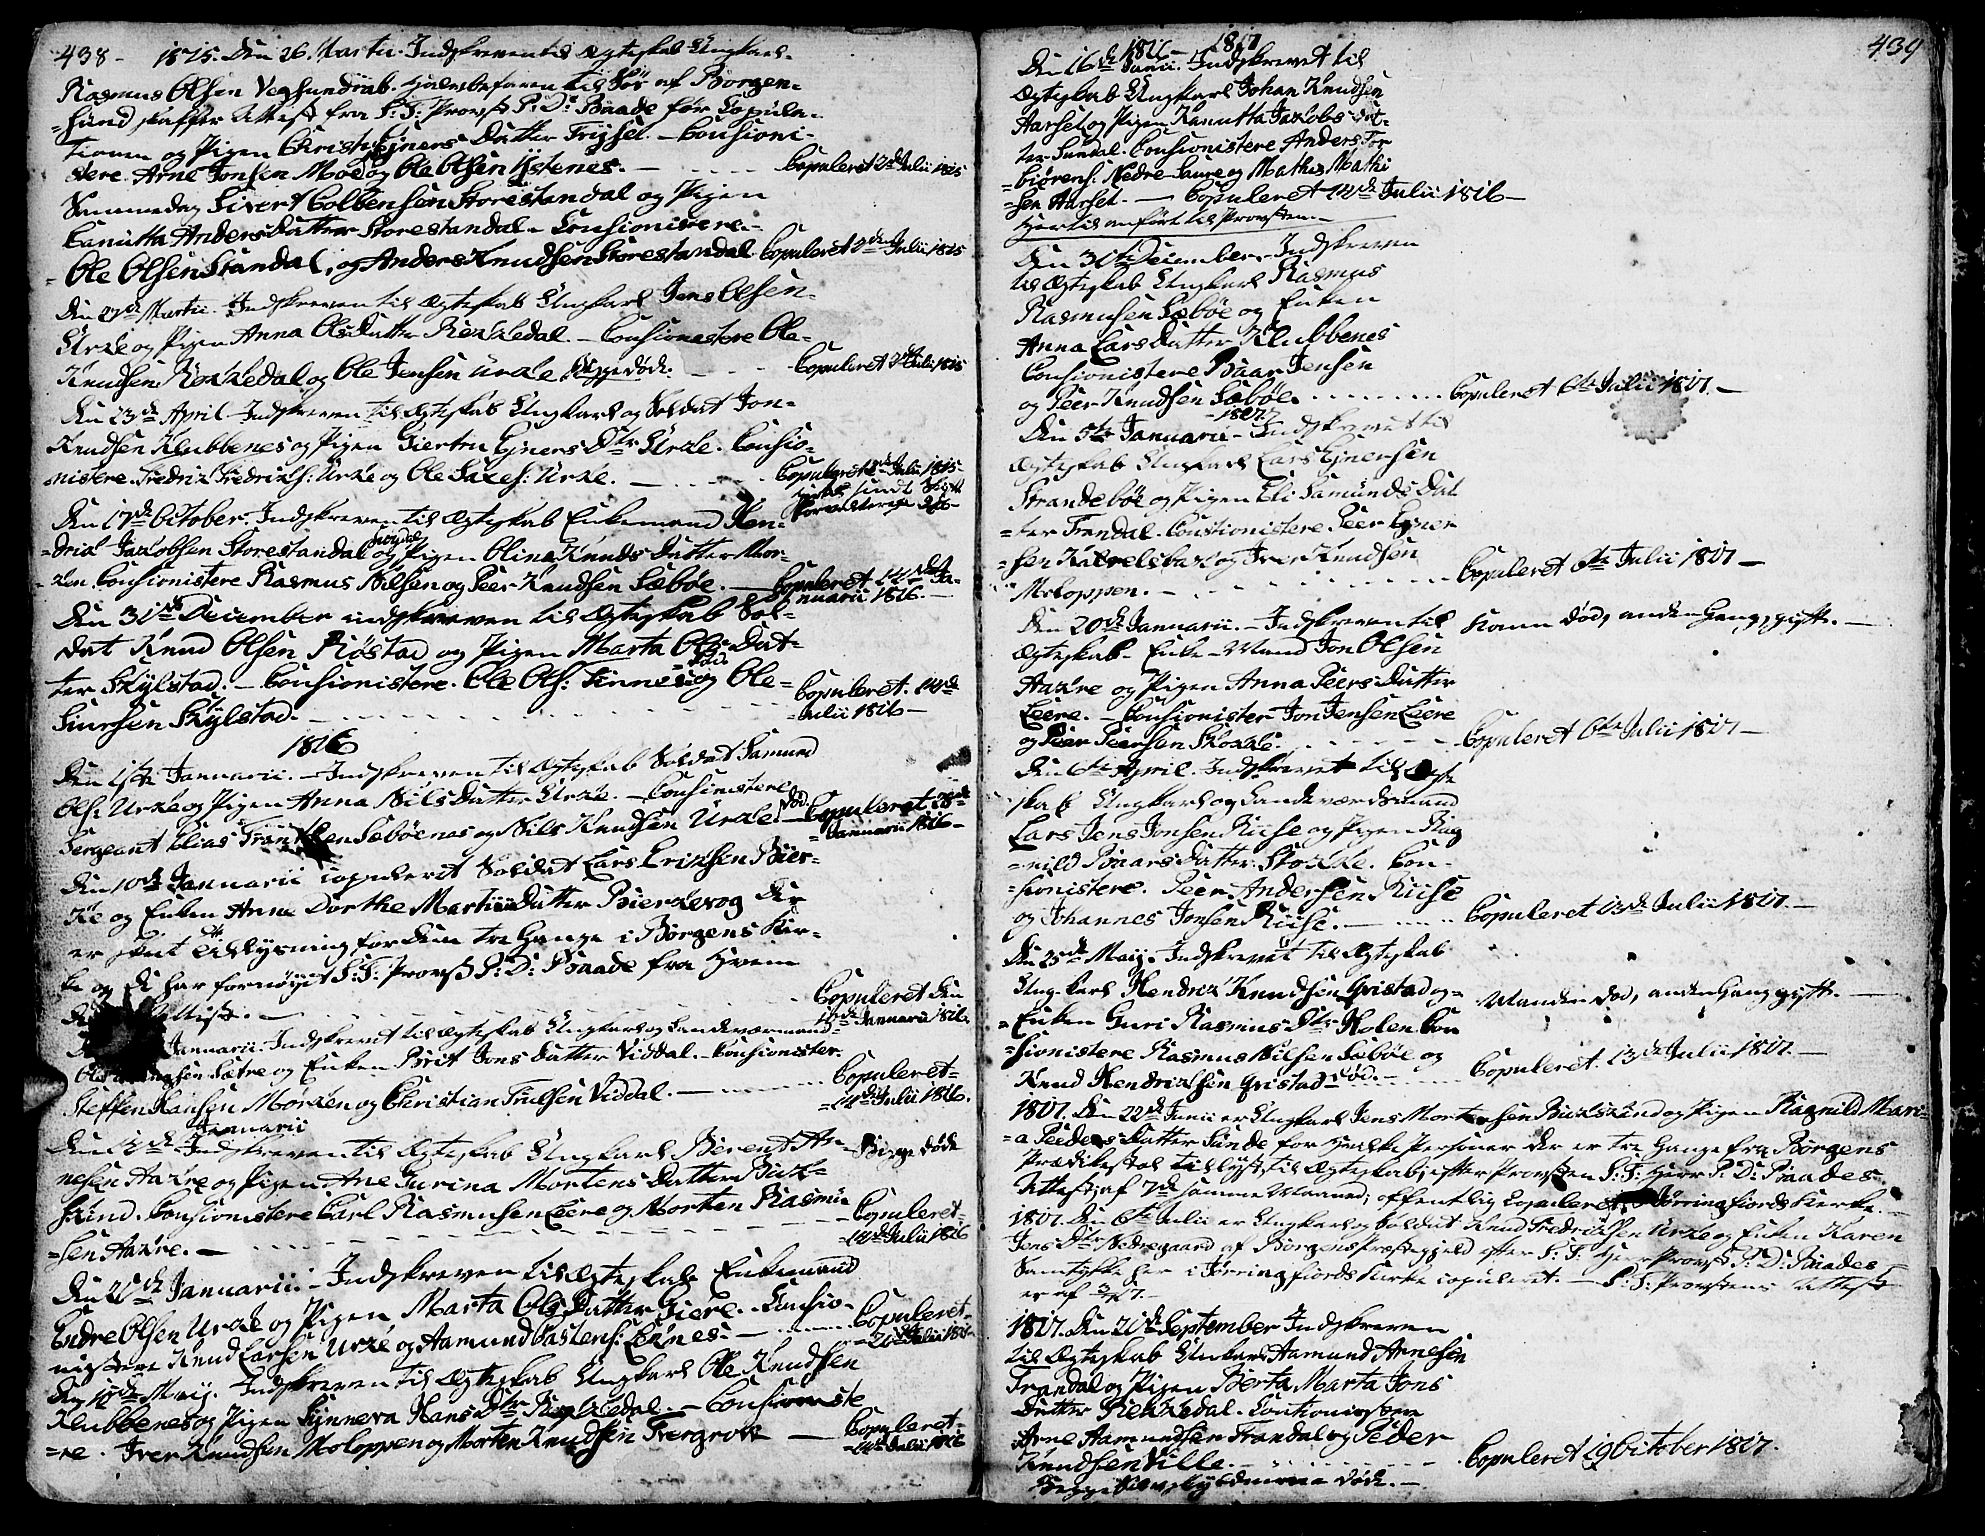 438 - 1815. Den 26. Martii. Indskreven til Ægteskab Ungkarl
Rasmus Olsen Vegsundvik
sund skaffer Attest fra S: T: Provst P: D: Baade før Copula-
tionen og Pigen Ejners Datter Trysel. - Causioni-
stere Arne Jonsen Moe og Ole Olsen Ystenes. - Copuleret 2de Julii 1815
Sammedag Sivert Colbensen Storestandal og Pigen
Canutta Anders Datter Storestandal - Causionistere
Ole Olsen Standal, og Anders Knudsen Storestandal Copuleret 2de Julii 1815
Den 27de Martii. Indskreven til Ægteskab Ungkarl Jens Olsen
Urke og Pigen Anna Ols Datter Rekkedal. - Causionistere Ole
Knudsen Rekkedal og Ole Jensen Urke Begge døde. Copuleret 2de Julii 1815
Den 23de April - Indskreven til Ægteskab Ungkarl og Soldat Jon
Knudsen Klubbenes og Pigen Giertru Ejners Dtr Urke. Causio-
nistere Fredrik Fredriks: Urke og Ole Saxes: Urke. - Copuleret Julii 1815
Den 17de October. Indskreven til Ægteskab Enkemand Hen-
drik Jakobsen Storestandal og Pigen Oline Knuds Datter Mør-
ken Causionistere Rasmus Nilsen og Peer Knudsen Sæbøe. - Copuleret 14de Ja-
nuarii 1816.
Den 31te December indskreven til Ægteskab Sol-
dat Knud Olsen Røstad og Pigen Marta Ols Dat-
ter Skylstad. - Causionistere Ole Ols: Finnes død og Ole
Siursen Skylstad. - Copuleret. 14de
Julii 1816 -
1816
Den 1ste Januarii. - Indskreven til Ægteskab Soldat Samund
Ols: Urke og Pigen Anna Nils Datter Urke. - Causionistere
Sergeant Elias Sæbøenes og Nils Knudsen Urke død. - Copuleret
Januarii 1816 -
Den 10de Januarii copuleret Soldat Lars Eriksen Bier-
ke og Enken Anne Dorthe Martiin Datter Bierkevog Der
er skeet Tillysning for dem tre Gange i Borgens Kir-
ke og de har fornøyet S: T: Provst P: D: Baade fra Hvem
Attest. - Copuleret den
10de Januarii 1816.
Januarii. Indskrevet til Ægteskab Ungkarl og Landeværnmand
Sætre og Enken Brit Jons Datter Viddal. - Causionister
Steffen Hansen Mørken og Christian Truelsen Viddal. - Copuleret
14de Julii 1816.
Januarii
Den 12de Indskreven til Ægteskab Ungkarl Berent Ar- Begge døde
nesen Aakre og Pigen Ane Gurina Mortens Datter
sund. Causionistere Carl Rasmusen Leere og Morten Rasmu-
sen Aakre. - Copuleret
14de Julii 1816
Den 21de Januarii - Indskreven til Ægteskab Enkemand
Endre Olsen Urke og Pigen Marta Ols Datter Leere. - Causio-
nistere Knud Larsen Urke og Aamund Castens: Leknes. - Copuleret
21de Julii 1816
Den 10de Maij. Indskreven til Ægteskab Ungkarl Ole Knudsen
Klubbenes og Pigen Synneva Hans Dtr Rekkedal. - Causioniste
re. Iver Knudsen Moloppen og Morten Knudsen - Copuleret
14de Julii 1816
439
1816 - 1817
Den 16de Junii. Indskrevet til
Ægteskab Ungkarl Johan Knudsen
Aarset og Pigen Kanutta Jakobs Dat-
ter Sundal. Causionistere Anders Tor
biørens: Nedre Saure og Mathis Mathi
sen Aarset. - Copuleret 14de Julii 1816 -
Hertil anført til Provsten. -
Den 31te December. Indskreven
til Ægteskab Ungkarl Rasmus
Rasmusen Sæbøe og Enken
Anna Lars Datter Klubbenes
Causionistere Baar Jensen
og Peer Knudsen Sæbøe. Copuleret 6te Julii 1817. -
1817
Den 5te Januarii - Indskrevet til
Ægteskab Ungkarl Lars Ejnersen
Strandebøe og Pigen Eli Samunds Dat
ter Trandal. Caustionistere Peer Ejner
sen Kurvelsbak og Iver Knudsen
Moloppen. - Copuleret 6te Julii 1817 -
Den 20de Januarii. - Indskreven til Konen død, anden Gang gift. -
Ægteskab - Enke-Mand Jon Olsen
Aakre og Pigen Anna Peers Datter
Leere. - Causionister Jon Jensen Leere
og Peer Peersen Skokke. Copuleret 6te Julii 1817 -
Den 6te April. Indskrevet til Ægte
skab Ungkarl og Landeværdsmand
Lars Jens Jonsen Riise og Pigen Rag
nild Baars Datter Skokke. Cau-
sionistere. Peer Andersen Riise
og Johannes Jonsen Riise. - Copuleret 13de Julii 1817. -
Den 25de Maij. Indskrevet til Ægteskab
Ungkarl Hendrik Knudsen Qvistad og Manden død, anden Gang gift. -
Enken Guri Rasmus Dtr Holen Cau
sionistere Rasmus Nilsen Sæbøe og
Knud Hendriksen Qvistad død. - Copuleret. 13de Julii 1817. -
1817. Den 22de Junii er Ungkarl Jens Mortensen og Pigen Ragnild Mari-
a Peeders Datter Sunde for Hvilke Personer der er tre Gange fra Borgens
Prædikestol tillyst til Ægteskab, efter Provsten S: T: Herr P: D: Baades
Attest, af 7de samme Maaned, offentlig Copuleret i Jørringfiords Kierke.
1817. Den 6te Julii er Ungkarl og Soldat Knud Fredriksen Urke og Enken Karen
Jens Dtr Nedregaard af Borgens Præstegjeld efter S: T: Herr Provst P: D: Baades
Samtykke her i Jørringfiords Kirke copuleret. - S: T: Provstens Attest
er af
1817. Den 21de September Indskreven
til Ægteskab Ungkarl Aamund Arnesen
Trandal og Pigen Berta Marta Jons
Datter Rekkedal. Cautionisten
Arne Aamundsen Trandal og Peder
Knudsen Ville. - Copuleret 19 October 1817.
Begge døde. -